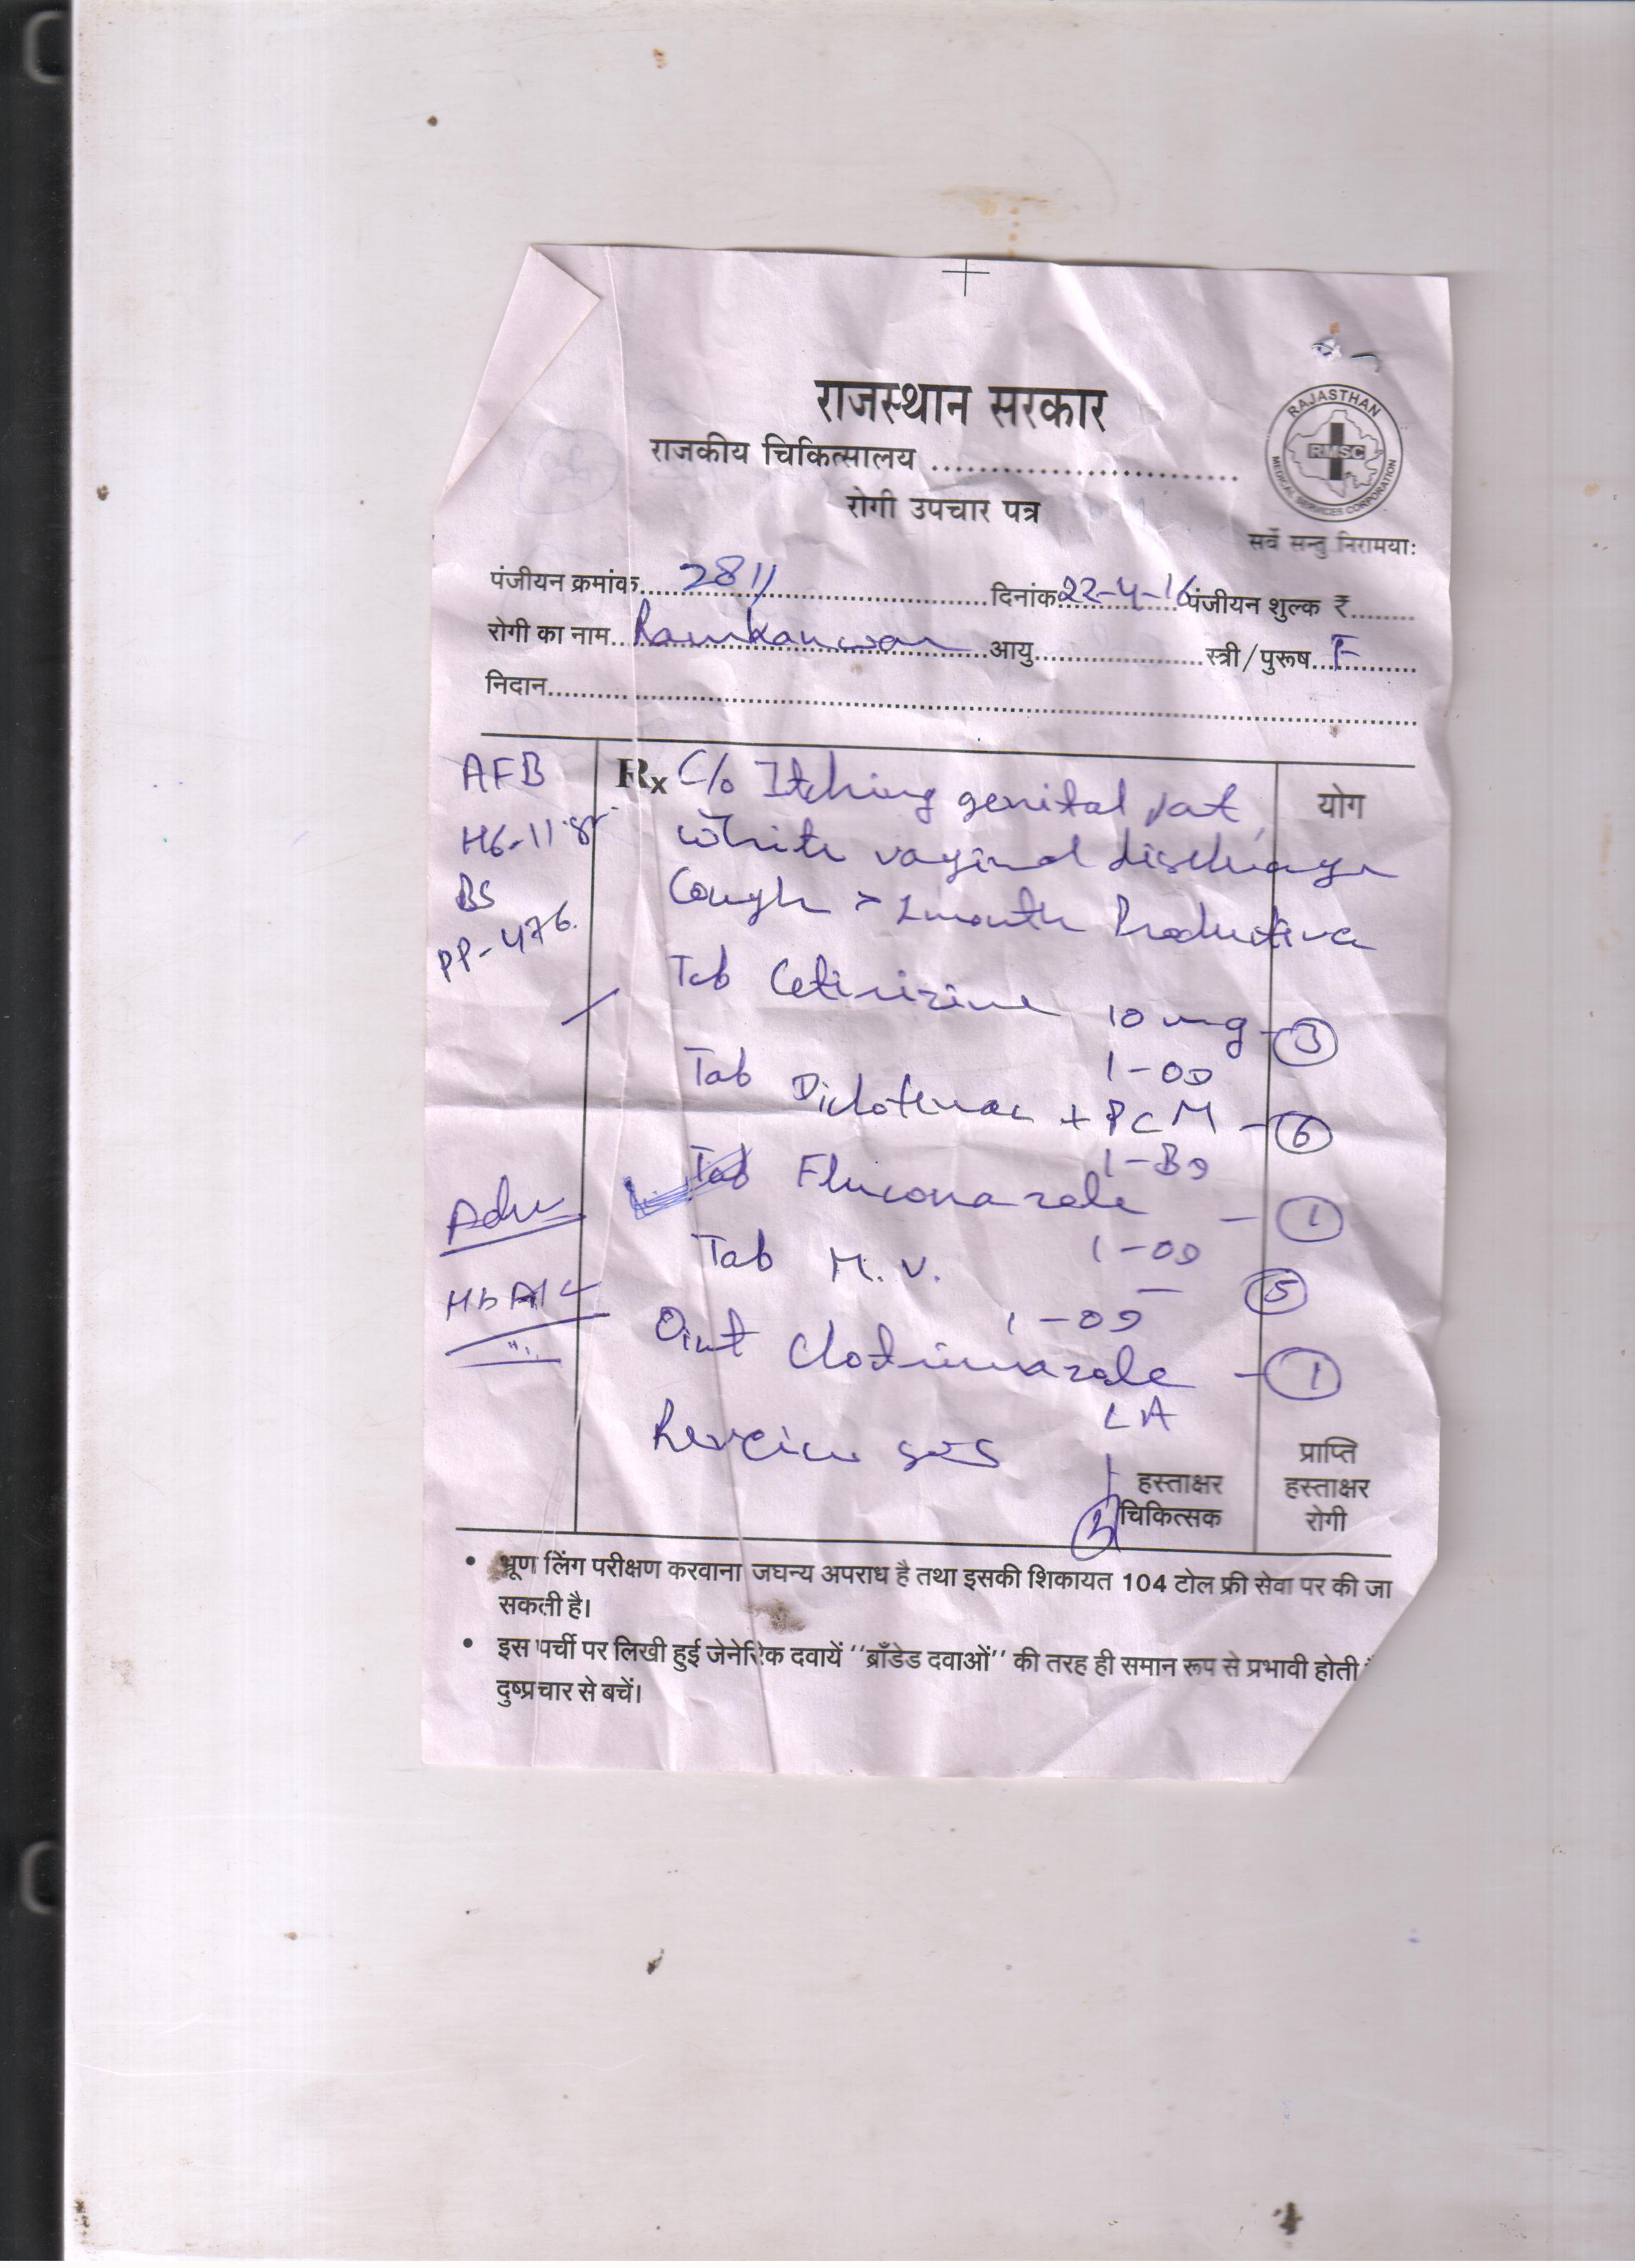 राजस्थान सरकार
राजकीय चिकित्सालय ........................
RAJASTHAN
RMSC
MEDICAL SERVICES CORPORATION
रोगी उपचार पत्र
सर्वे सन्तु निरामयाः
पंजीयन क्रमांक....2811....दिनांक 22-4-16 पंजीयन शुल्क ₹........
रोगी का नाम..Ramkanwar....आयु....................स्त्री/पुरूष..F........
निदान........................
Rx C/o Itching genital part,
योग
White vaginal discharge
Cough > 1 month Productive
AFB
Hb-11.8
BS
PP-476.
Tab Cetirizine 10 mg - 3
1-OD
Tab Diclofenac + PCM - 6
1-BD
Tab Fluconazole - 1
1-OD
Tab M.V. - 5
1-OD
Oint Clotrimazole - 1
LA
Adv
HbA1C
हस्ताक्षर
चिकित्सक
प्राप्ति
हस्ताक्षर
रोगी
• भ्रूण लिंग परीक्षण करवाना जघन्य अपराध है तथा इसकी शिकायत 104 टोल फ्री सेवा पर की जा
सकती है।
• इस पर्ची पर लिखी हुई जेनेरिक दवायें ''ब्राँडेड दवाओं'' की तरह ही समान रूप से प्रभावी होती
दुष्प्रचार से बचें।